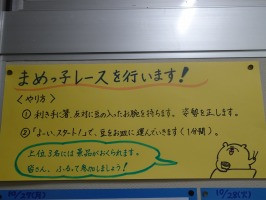 まめっ子レースを行います!
〈やり方〉
① 利き手に箸、反対に豆の入ったお椀を持ちます。姿勢を正します。
② 「よーい、スタート!」で、豆をお皿に運んでいきます(1分間)。
上位3名には景品がおくられます。
皆さん、ふるって参加しましょう!
10/27(月)
10/28(火)